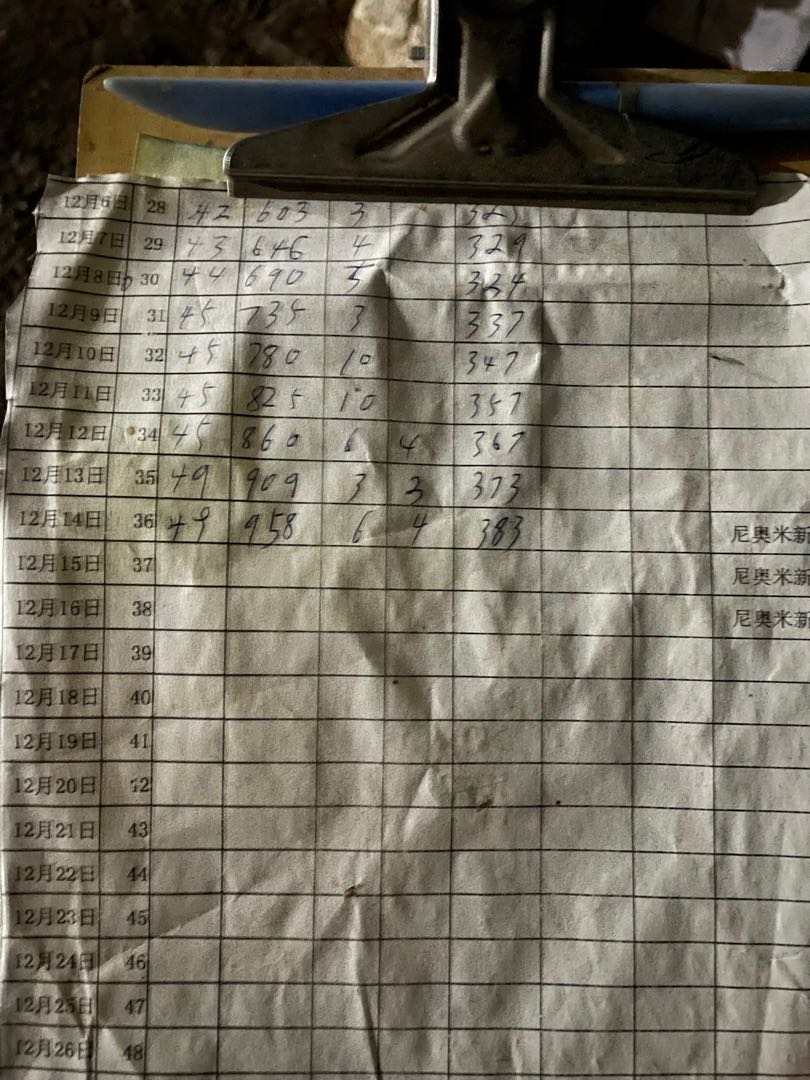 12月6日 28 42 603 3
12月7日 29 43 646 4 329
12月8日 30 44 690 5 334
12月9日 31 45 735 3 337
12月10日 32 45 780 10 347
12月11日 33 45 825 10 357
12月12日 34 45 860 6 4 367
12月13日 35 49 909 3 3 373
12月14日 36 49 958 6 4 383 尼奥米新
12月15日 37 尼奥米新
12月16日 38 尼奥米新
12月17日 39
12月18日 40
12月19日 41
12月20日 42
12月21日 43
12月22日 44
12月23日 45
12月24日 46
12月25日 47
12月26日 48